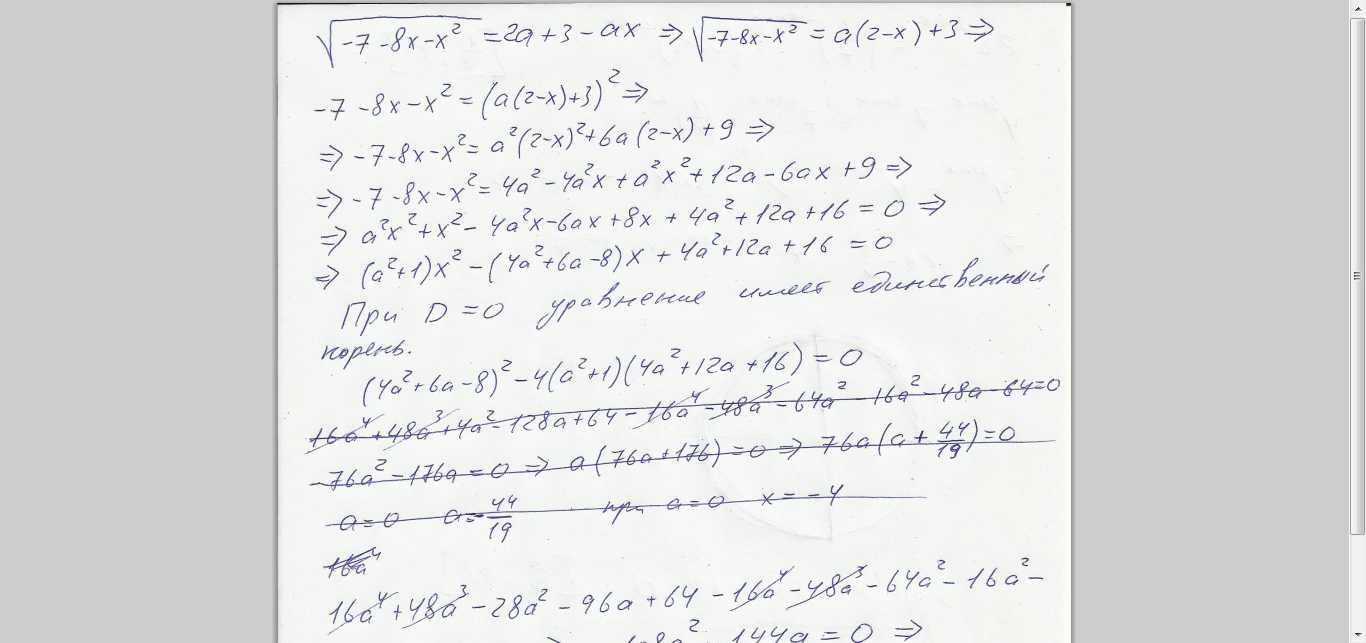 √(-7-8x-x²) = 2a+3-ax ⇒ √(-7-8x-x²) = a(2-x)+3 ⇒
-7-8x-x² = (a(2-x)+3)² ⇒
⇒ -7-8x-x² = a²(2-x)²+6a(2-x)+9 ⇒
⇒ -7-8x-x² = 4a²-4a²x+a²x²+12a-6ax+9 ⇒
⇒ a²x²+x²-4a²x-6ax+8x+4a²+12a+16=0 ⇒
⇒ (a²+1)x²-(4a²+6a-8)x+4a²+12a+16=0
При D=0 уравнение имеет единственный
корень.
(4a²+6a-8)²-4(a²+1)(4a²+12a+16)=0
16a⁴+48a³+4a²-128a+64-16a⁴-48a³-64a²-16a²-48a-64=0
76a²-176a=0 ⇒ a(76a+176)=0 ⇒ 76a(a+44/19)=0
a=0 a=-44/19 при a=0 x=-4
16a⁴
16a⁴+48a³-28a²-96a+64-16a⁴-48a³-64a²-16a²-
144a=0 ⇒